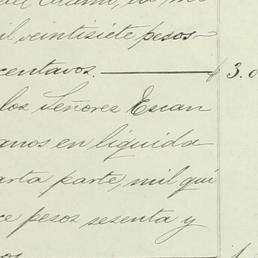 il veintisiete pesos
centavos. $ 3.0
los Señores Escan
anos en liquida
arta parte, mil qui
ce pesos sesenta y